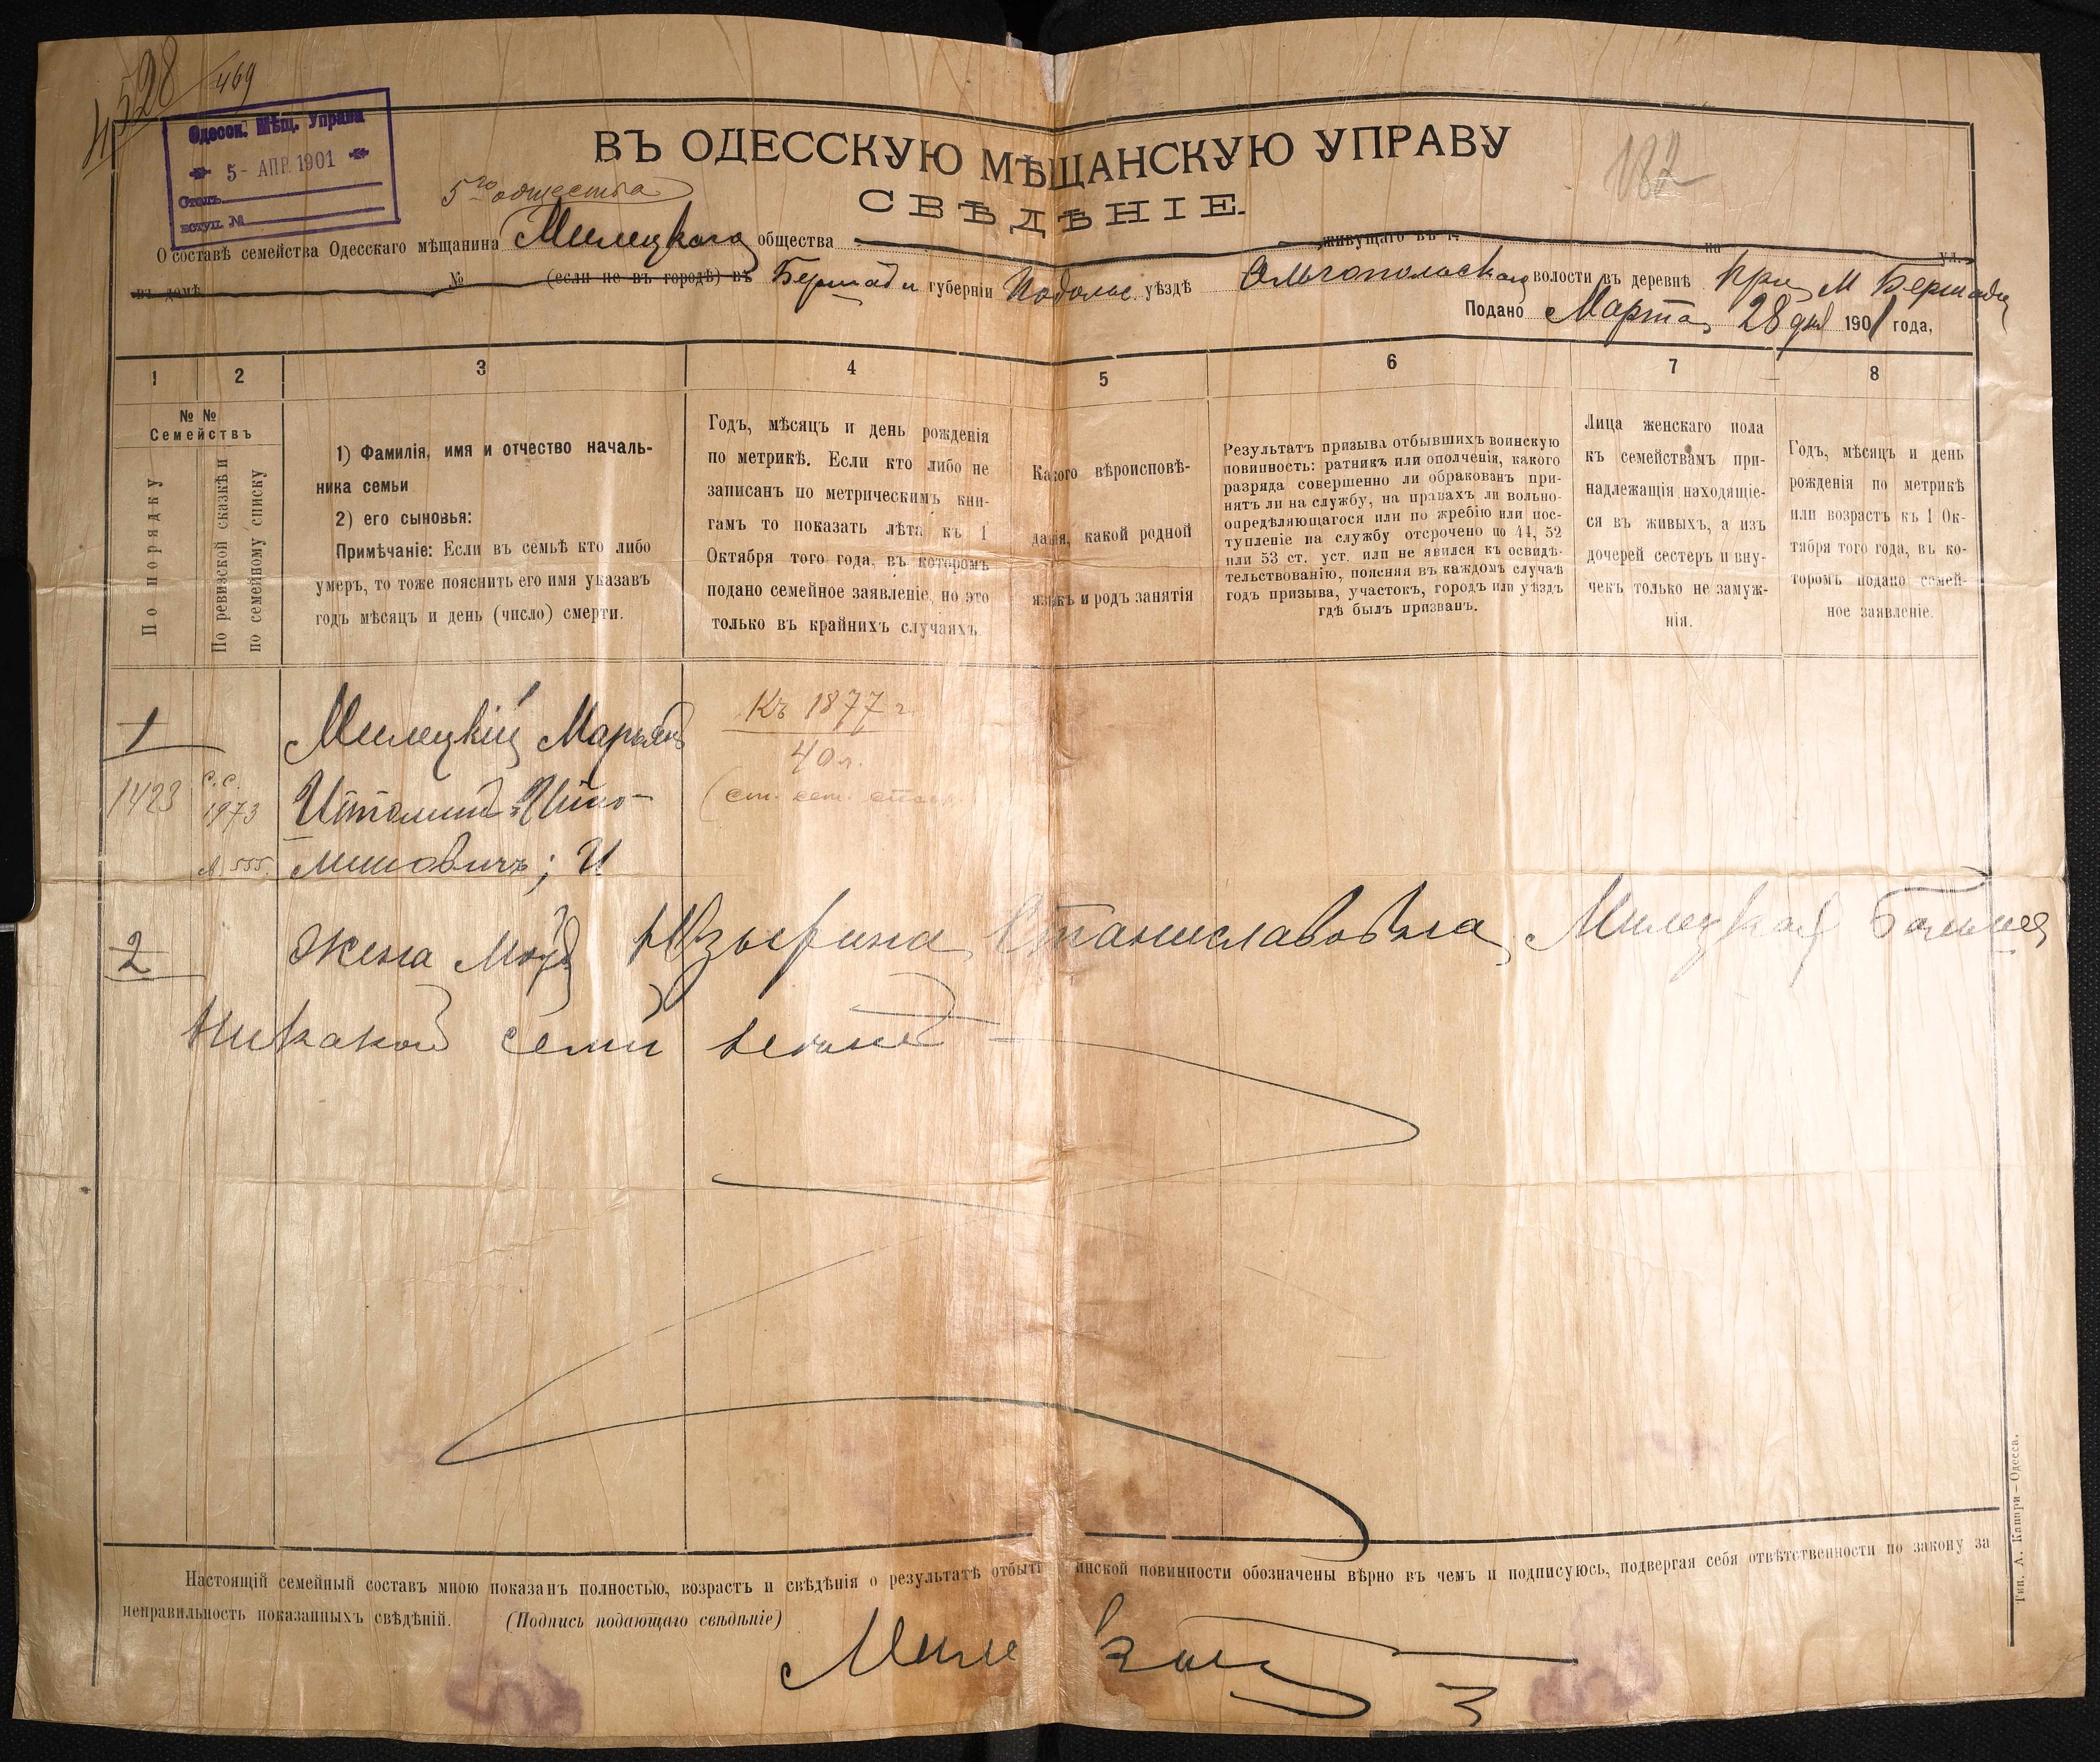 4528 / 469
Одесск. Мѣщ. Управа
5 - АПР. 1901
Столъ
вступ. №
ВЪ ОДЕССКУЮ МѢЩАНСКУЮ УПРАВУ
182
5го общества
СВѢДѢНІЕ.
О составѣ семейства Одесскаго мѣщанина Милецкаго общества живущаго въ г. на ул.
въ домѣ № (если не въ городѣ) въ Бершади губерніи Подольс. уѣздѣ Ольгопольскаго волости въ деревнѣ При М Бершади
Подано Марта 28 дня 1901 года,
1 2 3 4 5 6 7 8
№ №
Семействъ
По порядку
По ревизской сказкѣ и
по семейному списку
1) Фамилія, имя и отчество началь-
ника семьи
2) его сыновья:
Примѣчаніе: Если въ семьѣ кто либо
умеръ, то тоже пояснить его имя указавъ
годъ мѣсяцъ и день (число) смерти.
Годъ, мѣсяцъ и день рожденія
по метрикѣ. Если кто либо не
записанъ по метрическимъ кни-
гамъ то показать лѣта къ 1
Октября того года, въ которомъ
подано семейное заявленіе, но это
только въ крайнихъ случаяхъ.
Какого вѣроисповѣ-
данія, какой родной
языкъ и родъ занятія
Результатъ призыва отбывшихъ воинскую
повинность: ратникъ или ополченія, какого
разряда совершенно ли обракованъ при-
нятъ ли на службу, на правахъ ли вольно-
опредѣляющагося или по жребію или пос-
тупленіе на службу отсрочено по 44, 52
или 53 ст. уст. или не явился къ освидѣ-
тельствованію, поясняя въ каждомъ случаѣ
годъ призыва, участокъ, городъ или уѣздъ
гдѣ былъ призванъ.
Лица женскаго пола
къ семействамъ при-
надлежащія находящіе-
ся въ живыхъ, а изъ
дочерей сестеръ и вну-
чекъ только не замуж-
нія.
Годъ, мѣсяцъ и день
рожденія по метрикѣ
или возрастъ къ 1 Ок-
тября того года, въ ко-
торомъ подано семей-
ное заявленіе.
1 Милецкій Марьянъ
Къ 1877 г.
40 л.
1423 с.с. 1973
л. 555. миновичъ; И
2 Жена Моя Станиславовна Милецкая Больше
Никакой семи
Настоящій семейный составъ мною показанъ полностью, возрастъ и свѣдѣнія о результатѣ отбыті инской повинности обозначены вѣрно въ чемъ и подписуюсь, подвергая себя отвѣтственности по закону за
неправильность показанныхъ свѣдѣній. (Подпись подающаго свѣдѣніе)
Тип. А. Кашри—Одесса.